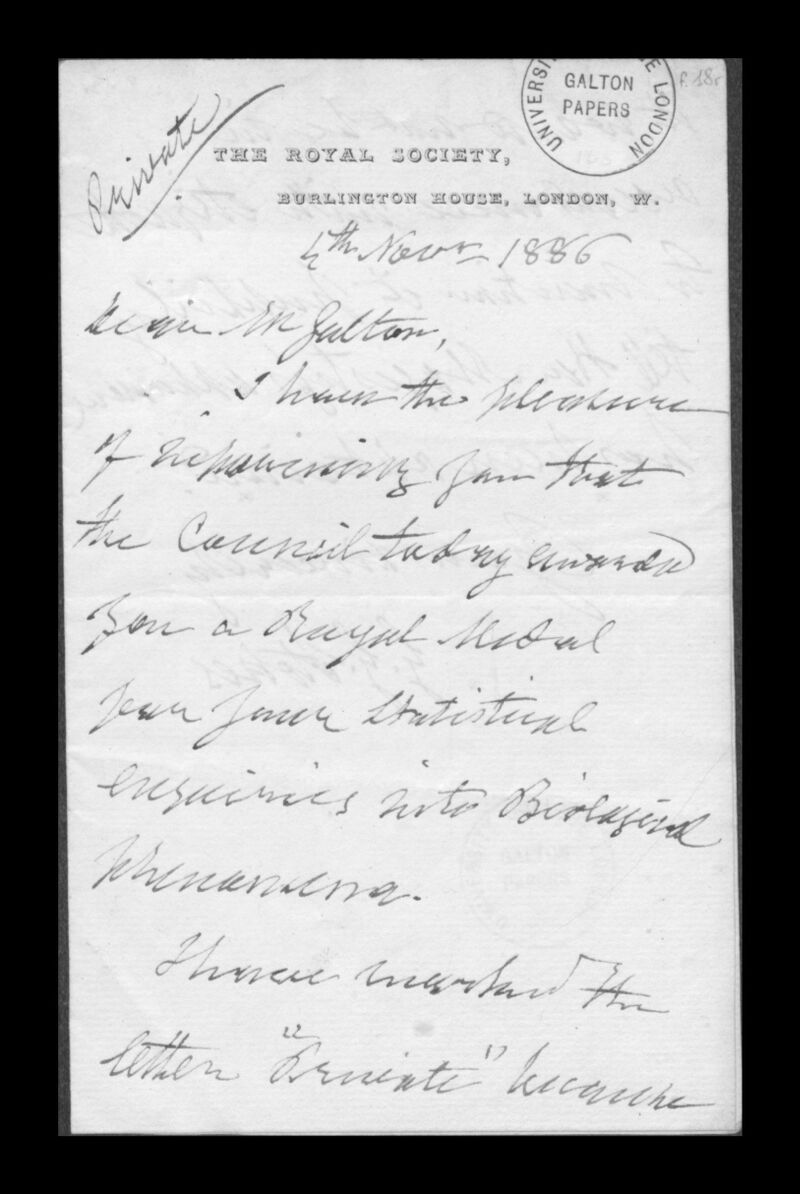 UNIVERSI
E LONDON
GALTON
PAPERS
f. 18r
Private
THE ROYAL SOCIETY,
BURLINGTON HOUSE, LONDON, W.
4th Novr 1886
Dear Mr Galton,
I have the pleasure
of informing you that
the Council today awarded
you a Royal Medal
for your Statistical
enquiries into Biological
phenomena.
I have marked the
letter "Private" because